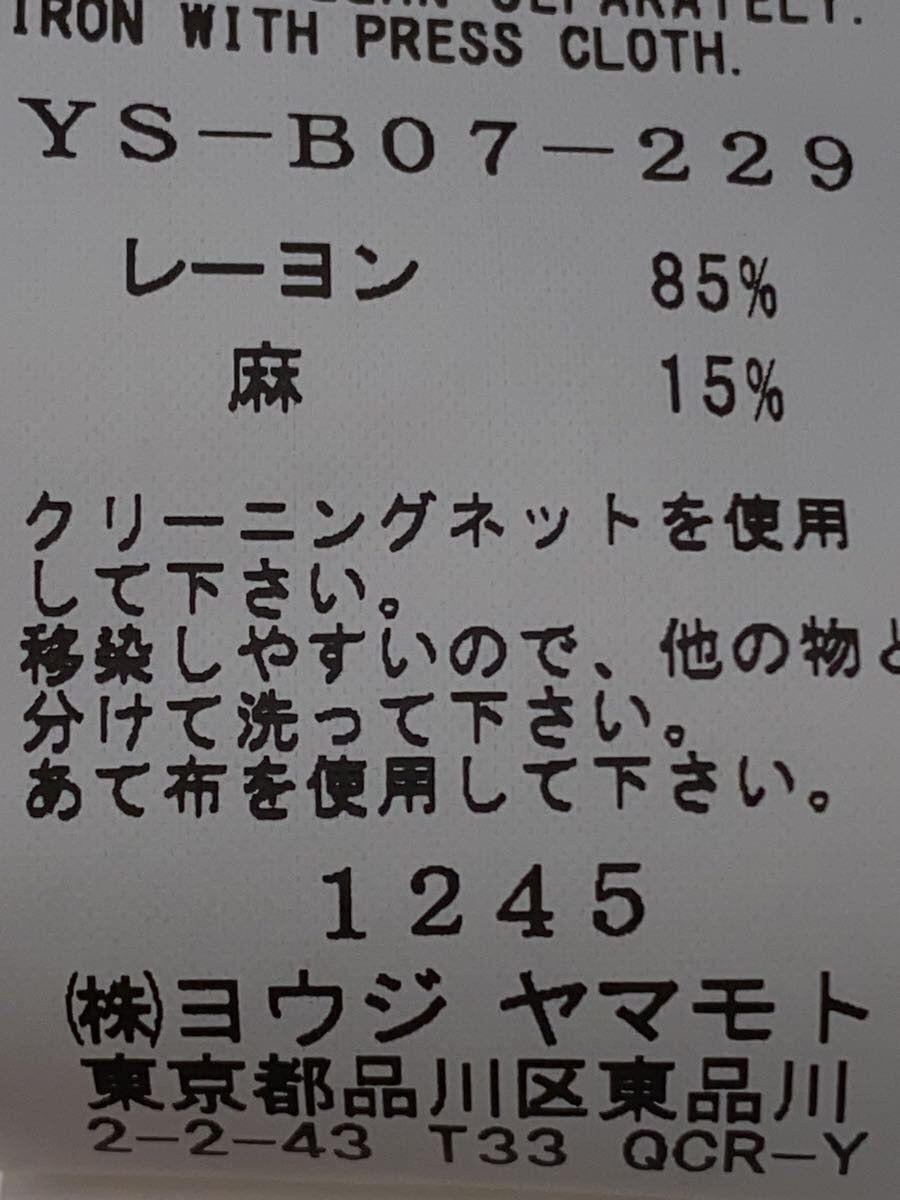 SEPARATELY.
IRON WITH PRESS CLOTH.
YS-B07-229
レーヨン 85%
麻 15%
クリーニングネットを使用
して下さい。
移染しやすいので、他の物と
分けて洗って下さい。
あて布を使用して下さい。
1245
(株)ヨウジ ヤマモト
東京都品川区東品川
2-2-43 T33 QCR-Y